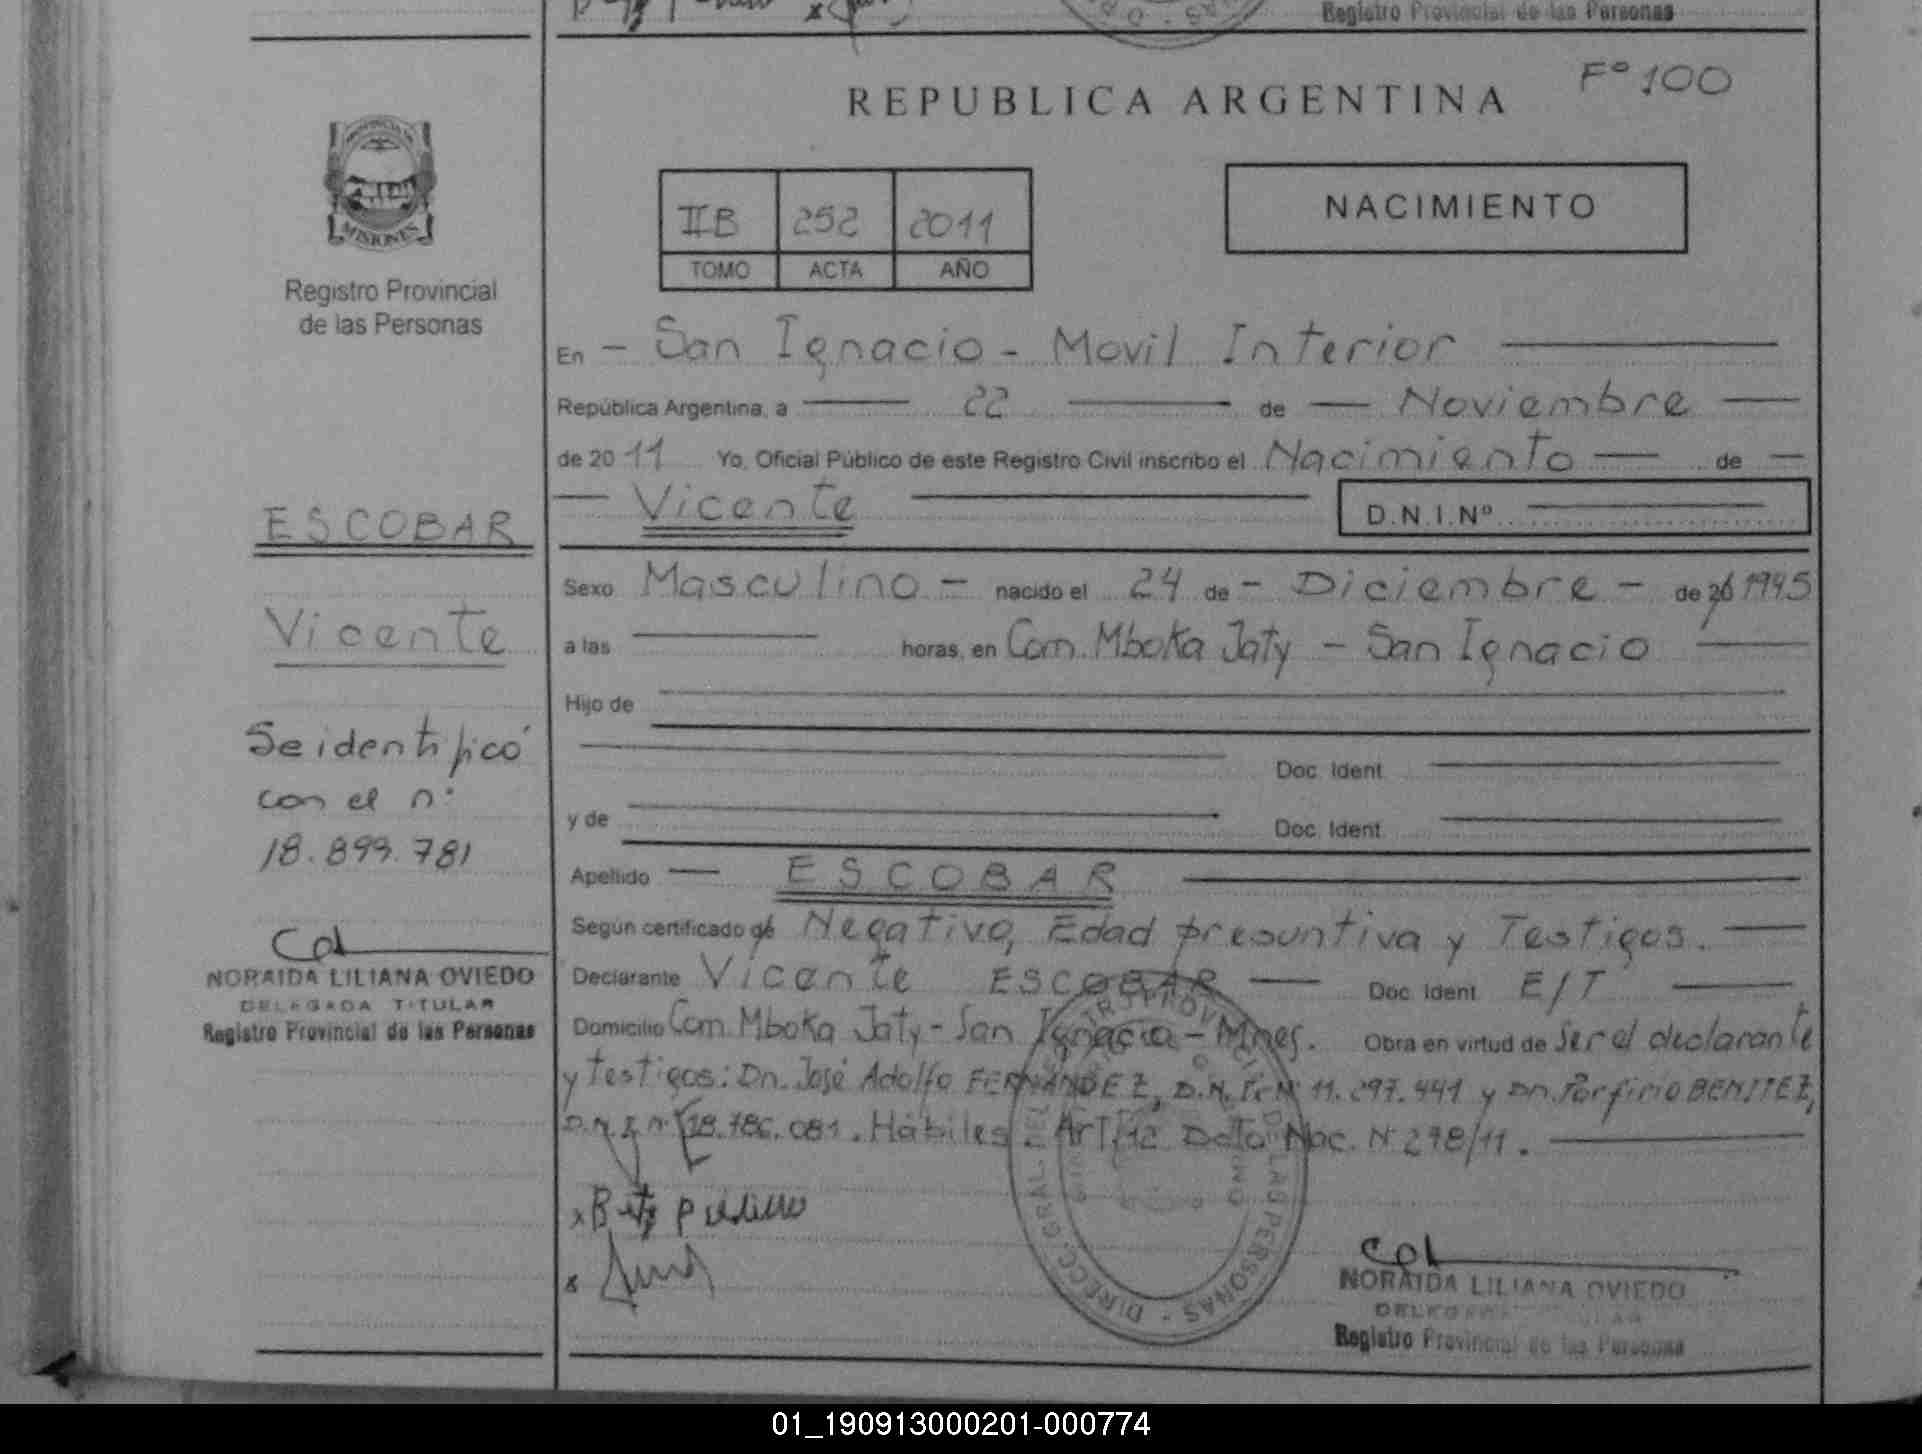 Registro Provincial de las Personas
Fº 100
REPUBLICA ARGENTINA
PROVINCIA DE
MISIONES
Registro Provincial
de las Personas
IIB 252 2011
TOMO ACTA AÑO
NACIMIENTO
En - San Ignacio - Movil Interior
República Argentina, a 22 de Noviembre
de 20 11 Yo, Oficial Público de este Registro Civil inscribo el Nacimiento de
Vicente D.N.I.Nº
ESCOBAR
Vicente
Se identificó
con el nº
18.899.781
NORAIDA LILIANA OVIEDO
DELEGADA TITULAR
Registro Provincial de las Personas
Sexo Masculino - nacido el 24 de - Diciembre - de 20 1945
a las horas, en Com. Mboka Jaty - San Ignacio
Hijo de
Doc. Ident.
y de Doc. Ident.
Apellido ESCOBAR
Según certificado de Negativo, Edad presuntiva y Testigos.
Declarante Vicente ESCOBAR Doc. Ident. E/T
Domicilio Com. Mboka Jaty - San Ignacio - Mnes. Obra en virtud de Ser el declarante
y testigos: Dn. José Adolfo FERNANDEZ, D.N.I. Nº 11.297.441 y Dn. Porfirio BENITEZ,
D.N.I. nº 18.786.081. Hábiles. Art. 12 Dcto Nac. Nº 278/11.
DIRECC. GRAL. DEL REGISTRO PROVINCIAL DE LAS PERSONAS
NORAIDA LILIANA OVIEDO
Registro Provincial de las Personas
01_190913000201-000774